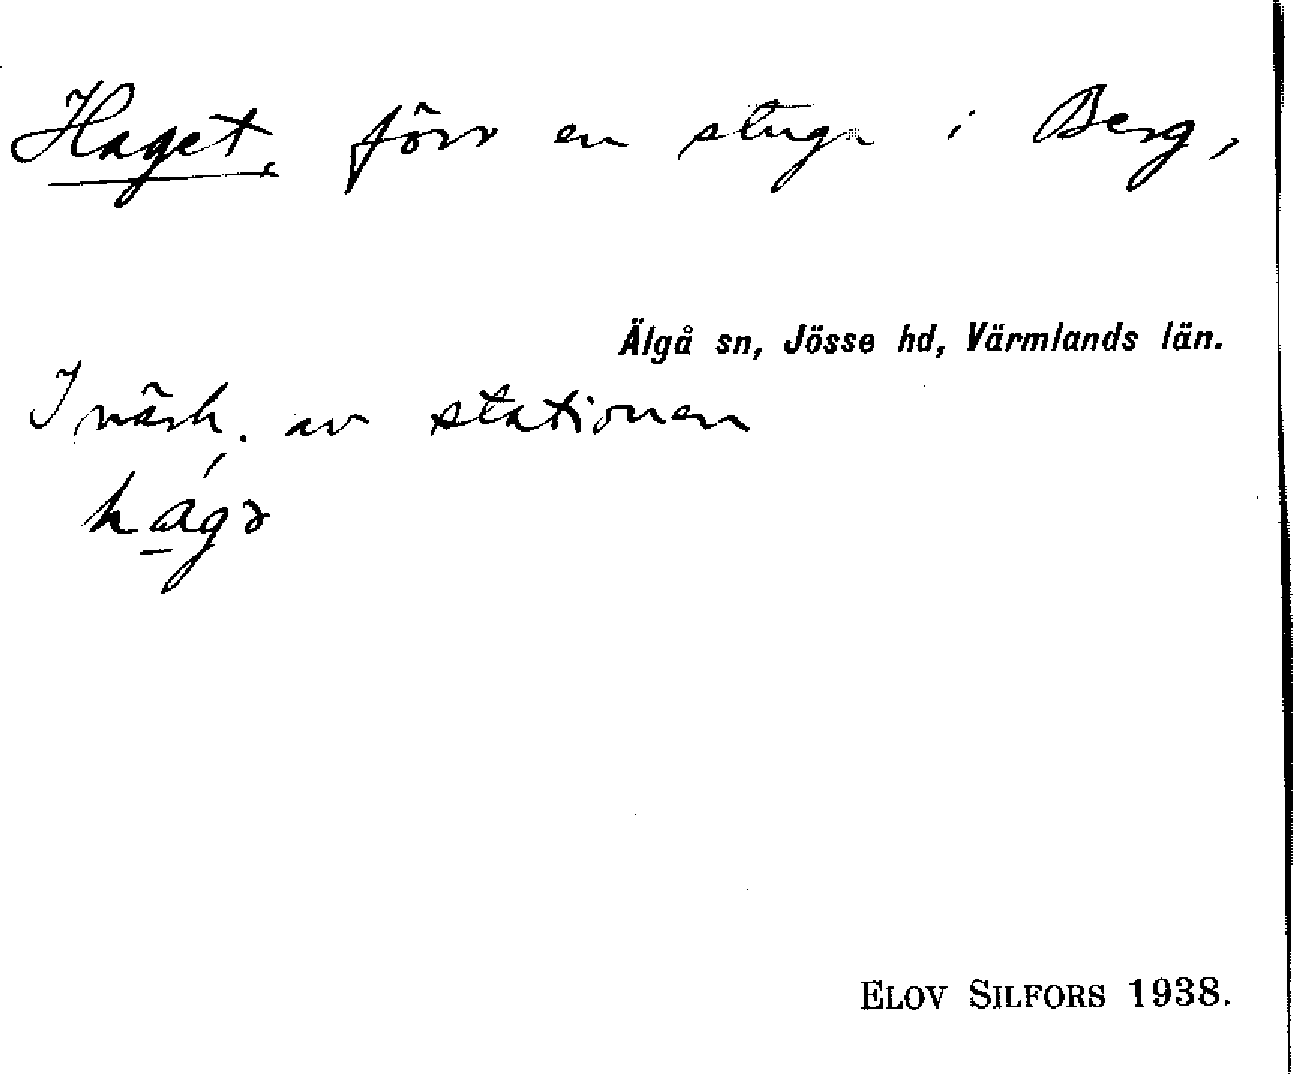 Haget, förr en stuga i Berg,
Älgå sn, Jösse hd, Värmlands län.
I närh. av stationen
há̱gə
ELOV SILFORS 1938.